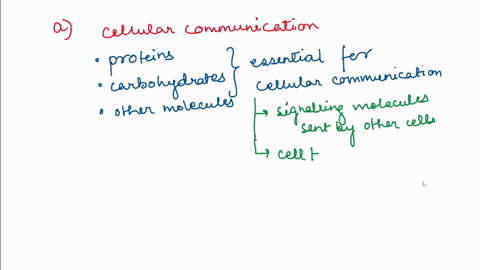 a) cellular communication
• proteins
• carbohydrates
• other molecules
essential for
cellular communication
→ signalling molecules
sent by other cells
→ cell t